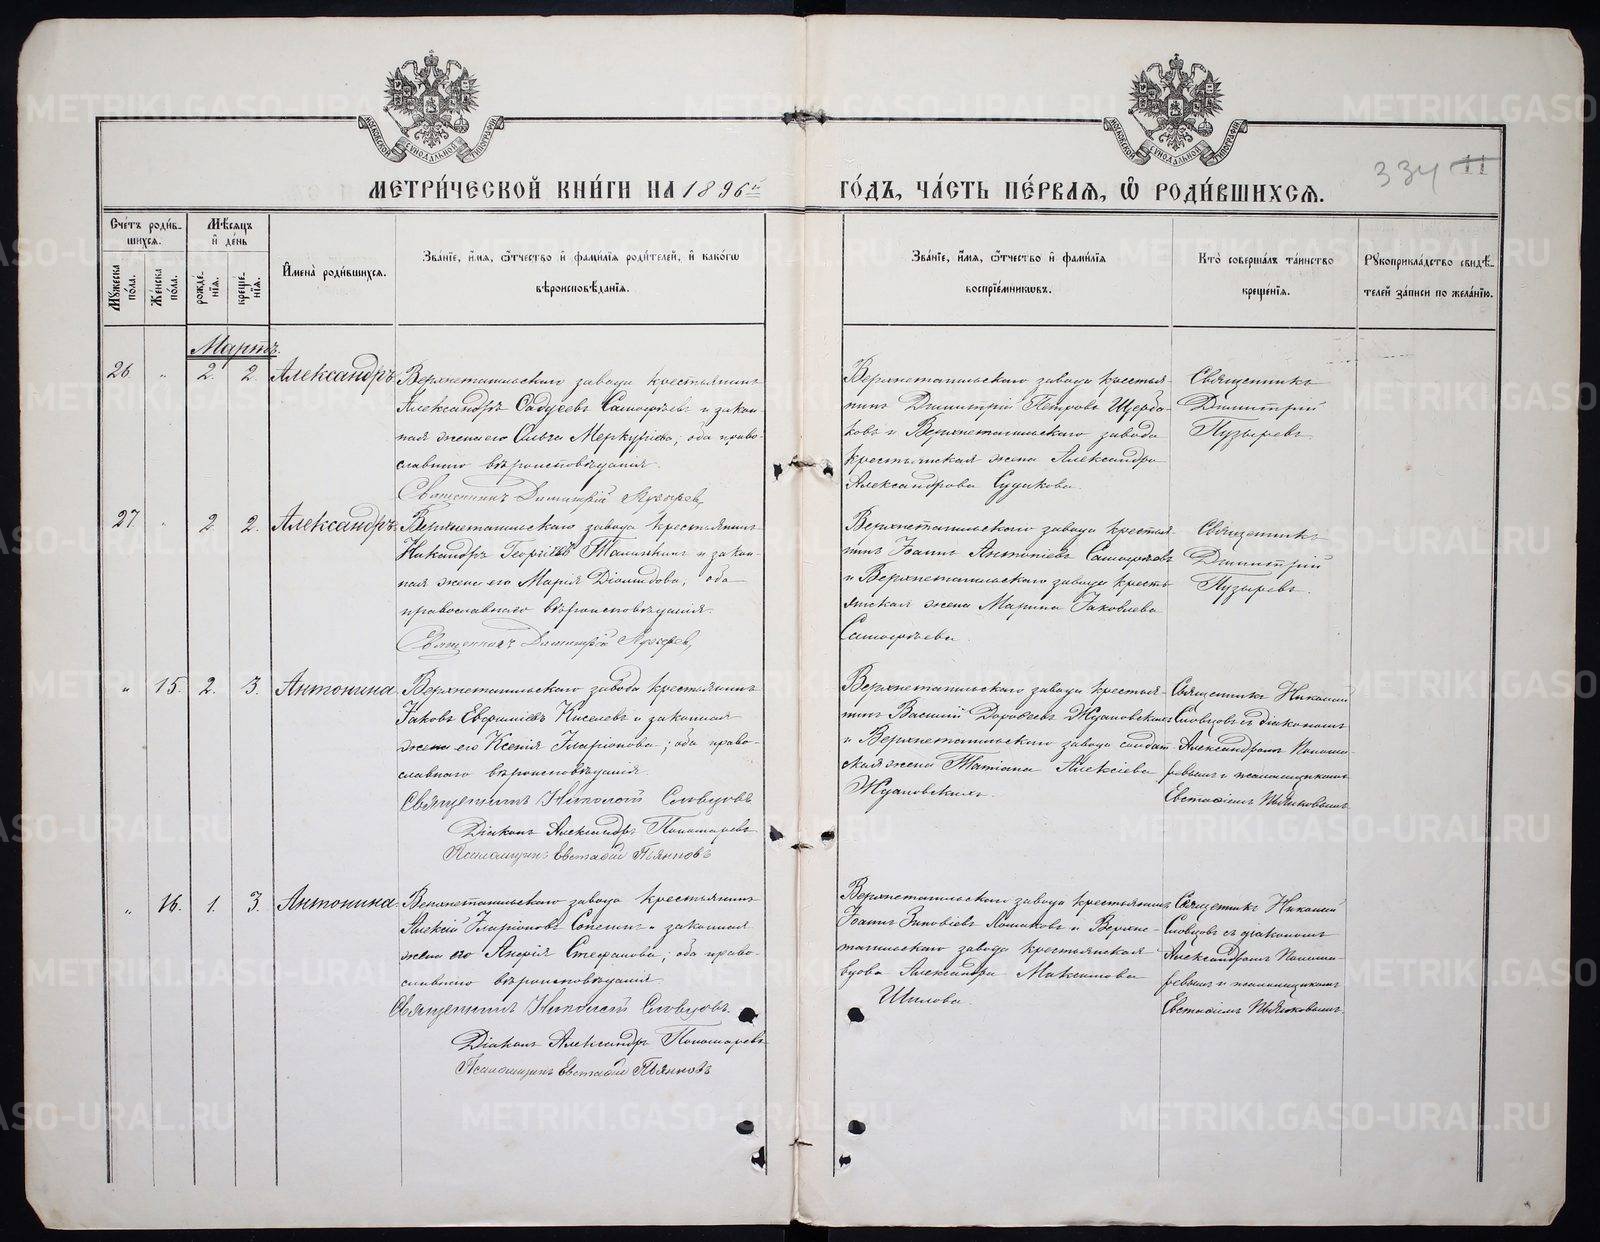 МЕТРИ́ЧЕСКОЙ КНИ́ГИ НА 1896й ГО́ДЪ, ЧА́СТЬ ПЕ́РВАѦ, Ѿ РОДИ́ВШИХСѦ.
334 11
Сче́тъ роди́в-
шихсѧ.
Мѣ́сѧцъ
и де́нь
Мꙋ́жеска
по́ла.
Же́нска
по́ла.
рожде́-
нїѧ.
креще́-
нїѧ.
Имена̀ роди́вшихсѧ.
Зва́нїе, и́мѧ, ѻ҆́тчество и҆ фами́лїѧ роди́телей, и҆ како́гѡ
вѣроисповѣ́данїѧ.
Зва́нїе, и́мѧ, ѻ҆́тчество и҆ фами́лїѧ
воспрїе́мникѡвъ.
Кто̀ соверша́лъ та́инство
креще́нїѧ.
Рꙋкоприкла́дство свидѣ́-
телей за́писи по жела́нїю.
Мартъ.
26 „ 2. 2. Александръ
Верхнетагильскаго завода крестьянинъ
Александръ Самофѣевъ и закон-
ная жена его Ольга Меркуріева; оба право-
славнаго вѣроисповѣданія.
Священникъ Димитрій Пузыревъ
Верхнетагильскаго завода крестья-
нинъ Димитрій Петровъ Щерба-
ковъ и Верхнетагильскаго завода
крестьянская жена Александра
Александрова Судакова.
Священникъ
Димитрій
Пузыревъ.
27 „ 2. 2. Александръ
Верхнетагильскаго завода крестьянинъ
Никандръ Георгіевъ и закон-
ная жена его Марія Діомидова; оба
православнаго вѣроисповѣданія.
Священникъ Димитрій Пузыревъ
Верхнетагильскаго завода крестья-
нинъ Іоаннъ Антоніевъ Самофѣевъ
и Верхнетагильскаго завода кресть-
янская жена Марина Іаковлева
Самофѣева.
Священникъ
Димитрій
Пузыревъ.
„ 15. 2. 3. Антонина
Верхнетагильскаго завода крестьянинъ
Іаковъ Евфиміевъ Киселевъ и законная
жена его Ксенія Иларіонова; оба право-
славнаго вѣроисповѣданія.
Священникъ Николай Словцовъ
Діаконъ Александръ Пономаревъ
Псаломщикъ Евстафій Пьянковъ
Верхнетагильскаго завода крестья-
нинъ Василій Дорофеевъ Ждановскихъ
и Верхнетагильскаго завода солдат-
ская жена Татіана Алексіева
Ждановскихъ.
Священникъ Николай
Словцовъ съ діакономъ
Александромъ Понома-
ревымъ и псаломщикомъ
Евстафіемъ Пьянковымъ
„ 16. 1. 3. Антонина
Верхнетагильскаго завода крестьянинъ
Алексій Иларіоновъ и законная
жена его Стефанова; оба право-
славнаго вѣроисповѣданія
Священникъ Николай Словцовъ
Діаконъ Александръ Пономаревъ
Псаломщикъ Евстафій Пьянковъ
Верхнетагильскаго завода крестьянинъ
Іоаннъ Зиновіевъ и Верхне-
тагильскаго завода крестьянская
вдова Александра Максимова
Шилова.
Священникъ Николай
Словцовъ съ діакономъ
Александромъ Понома-
ревымъ и псаломщикомъ
Евстафіемъ Пьянковымъ.
METRIKI.GASO-URAL.RU